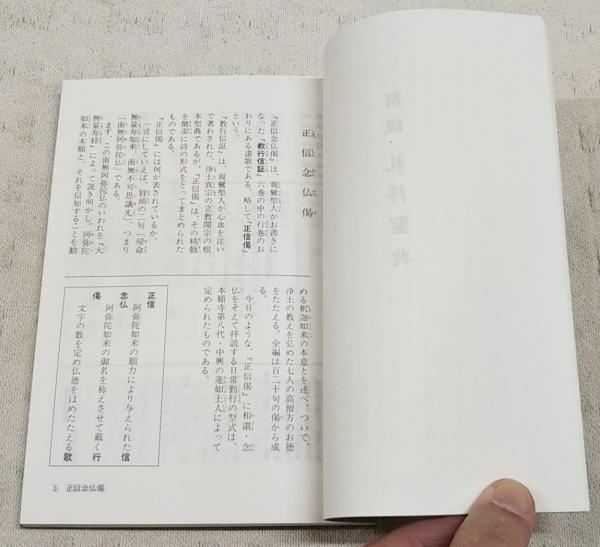 正信念仏偈
『正信念仏偈』は、親鸞聖人がお書きに
なった『教行信証』六巻の中の行巻のお
わりにある讃歌である。略して『正信偈』
という。
『教行信証』は、親鸞聖人が心血を注い
で著わされた、浄土真宗の立教開宗の根
本聖典であるが、『正信偈』は、その精髄
を簡潔に詩の形式をとってまとめられた
ものである。
『正信偈』は何が表されているか。
一言にしていえば、冒頭の二句「帰命
無量寿如来、南無不可思議光」、つまり
「南無阿弥陀仏」である。
まず、この南無阿弥陀仏のいわれを『大
無量寿経』によって説き明かし、阿弥陀
如来の本願と、それを信知することを勧
める釈迦如来の本意とを述べ、ついで、
浄土の教えを弘めた七人の高僧方のお徳
をたたえる。全編は百二十句の偈から成
る。
今日のような、『正信偈』に和讃・念
仏をそえて拝読する日常勤行の型式は、
本願寺第八代・中興の蓮如上人によって
定められたものである。
正信 阿弥陀如来の願力により与えられた信
念仏 阿弥陀如来の御名を称えさせて戴く行
偈 文字の数を定め仏徳をほめたたえる歌
3 正信念仏偈
解説・礼拝聖典